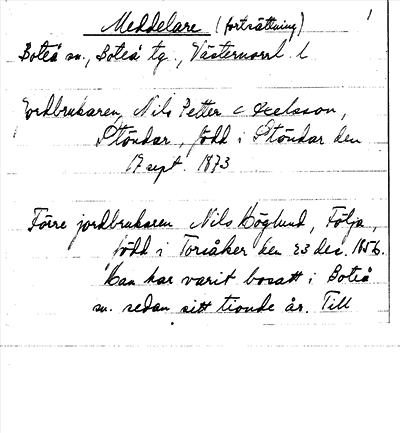 1
Meddelare (fortsättning)
Boteå sn., Boteå tg., Västernorrl. l
Jordbrukaren Nils Petter Axelsson,
Stöndar, född i Stöndar den
17 sept. 1873
Förre jordbrukaren Nils Höglund, Följa,
född i Torsåker den 23 dec. 1856.
Han har varit bosatt i Boteå
sn. sedan sitt tionde år. Till